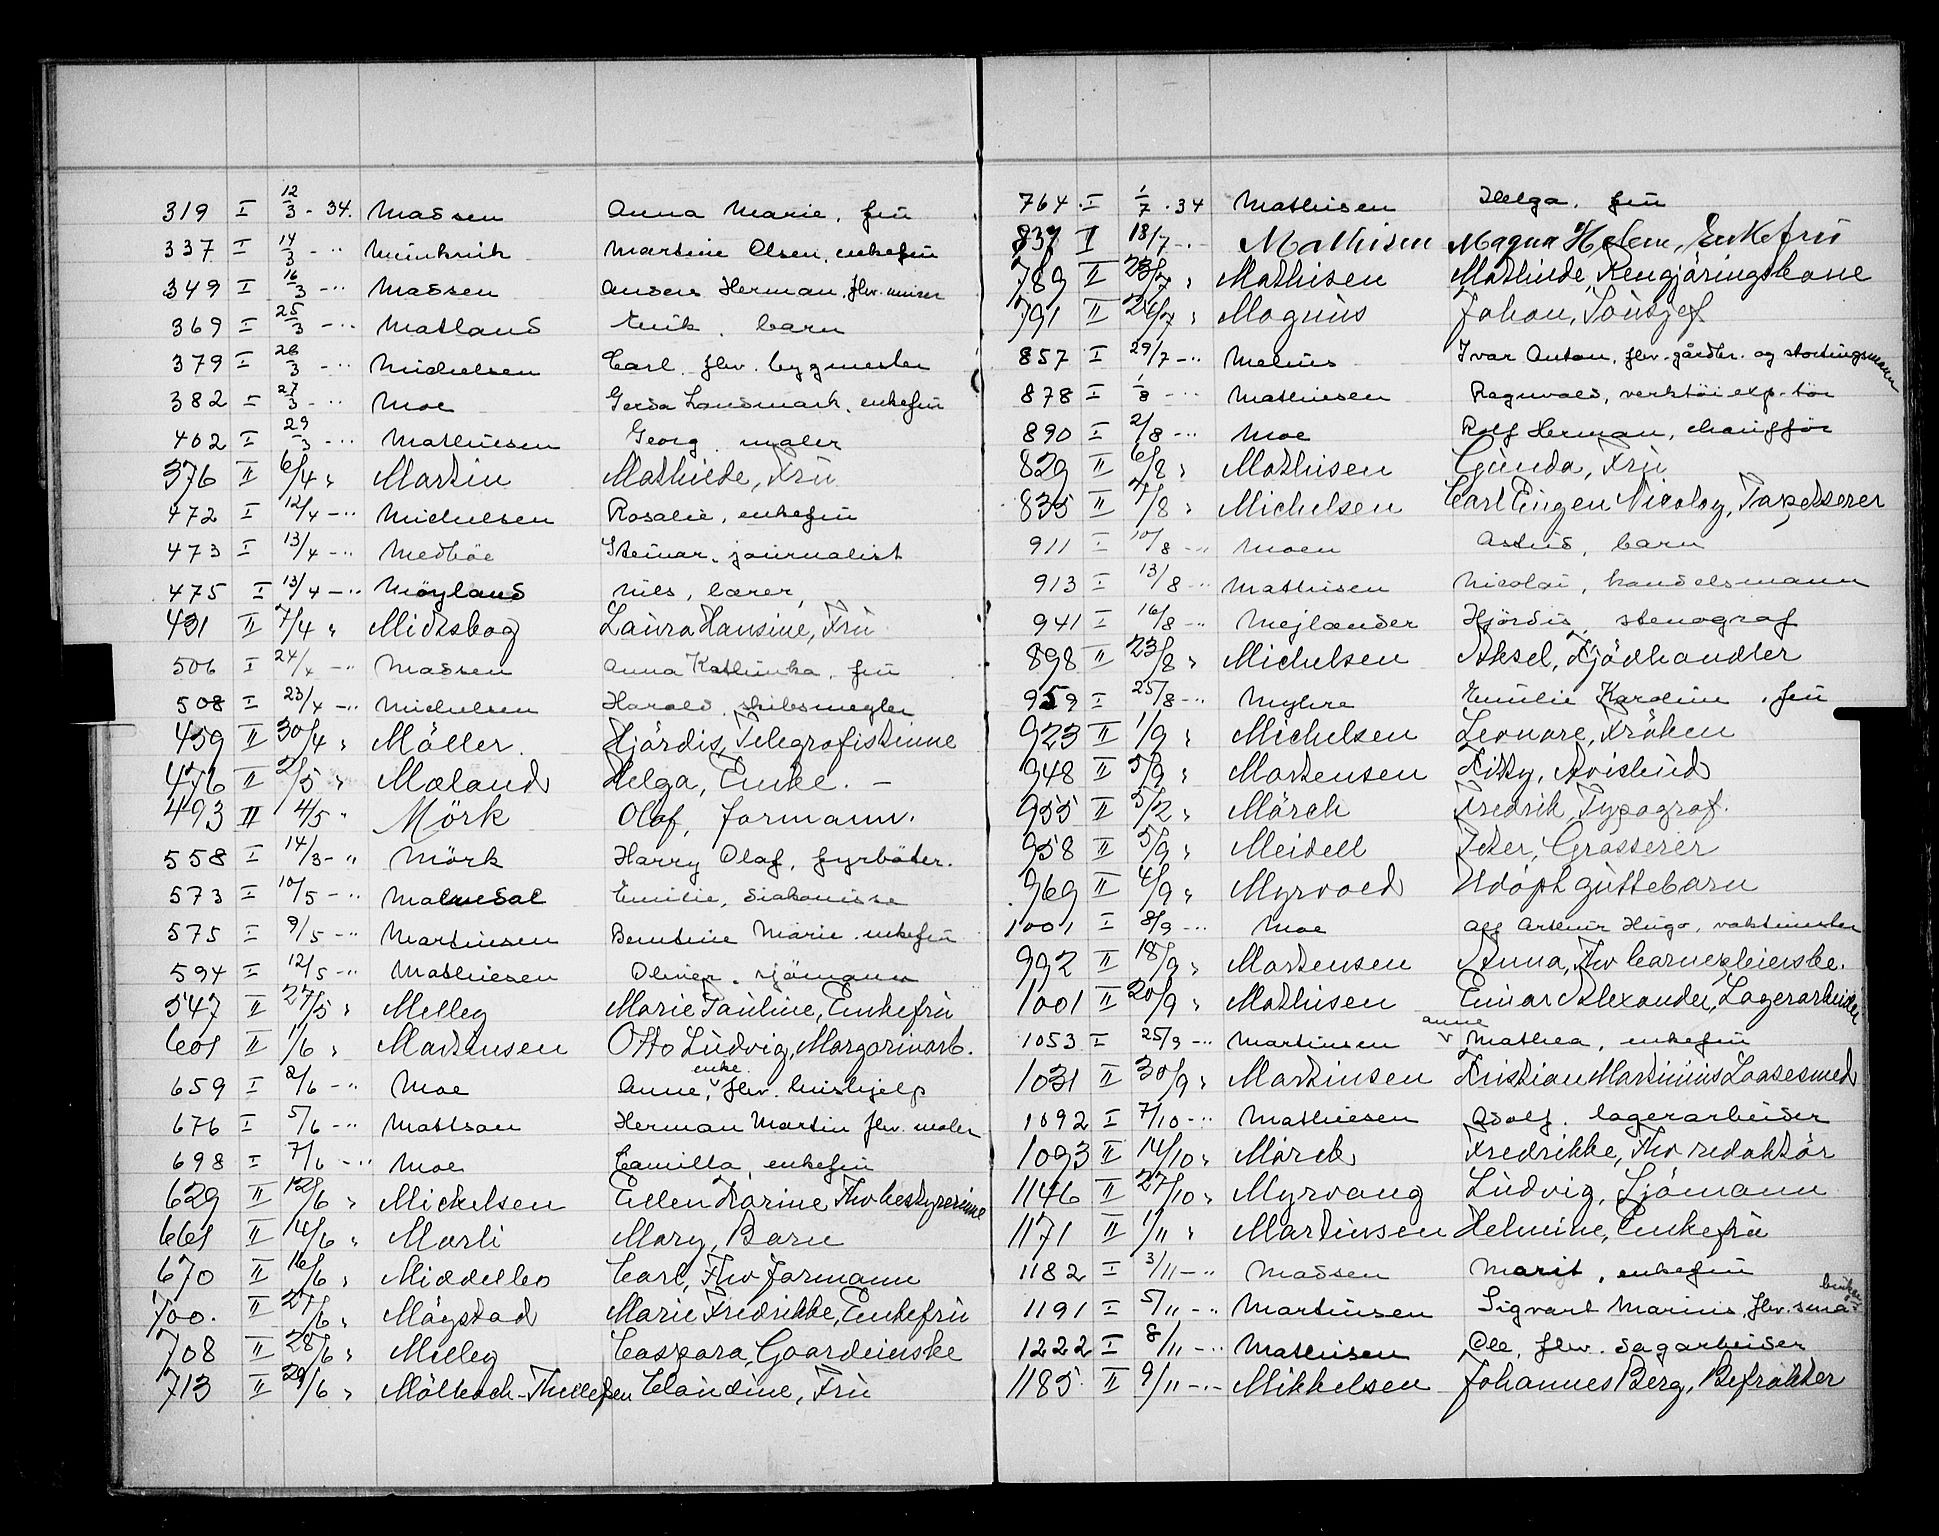 319 I 12/3 - 34. Madsen Anna Marie, fru
337 I 14/3 - " Martine Olsen, enkefru
349 I 16/3 - " Madsen Anders Herman, fhv. murer
369 I 25/3 - " Matland Erik, barn
379 I 26/3 - " Michelsen Carl, fhv. bygmester
382 I 27/3 - " Moe Gerda Landmark, enkefru
402 I 29/3 - " Mathiesen Georg, maler
376 II 6/4 " Martin Mathilde, Frù
472 I 12/4 - " Michelsen Rosalie, enkefru
473 I 13/4 - " Medböe Steinar, journalist
475 I 13/4 - " Möyland Nils, lærer,
431 II 7/4 " Midtskog Laura Hansine, Frù
506 I 24/4 - " Madsen Anna Kathinka, fru
508 I 23/4 - " Michelsen Harald, skibsmegler
459 II 30/4 " Möller. Hjördis, Telegrafistinne
476 II 2/5 " Mæland Helga, Enke. -
493 II 4/5 " Mörk Olaf, formann.
558 I 14/3 - " Mörk Harry Olaf, fyrböter.
573 I 10/5 - " Malmedal Emilie, diakonisse
575 I 9/5 - " Martinsen Berntine Marie, enkefru
594 I 12/5 - " Mathiesen Oliver, sjömann
547 II 27/5 " Melley Marie Pauline, Enkefrù
601 II 1/6 " Martinsen Otto Lùdvig, Margarinarb.
659 I 2/6 - " Moe Anne, enke fhv. hushjelp
676 I 5/6 - " Mattson Herman Martin fhv. maler
698 I 7/6 - " Moe Camilla, enkefru
629 II 12/6 " Mickelsen Ellen Karine Fhv bestyrerinne
661 II 14/6 " Marli Mary, Barn
670 II 16/6 " Middelbo Carl, Fhv formann
700. II 27/6 " Mögstad Marie Fredrikke, Enkefrù
708 II 28/6 " Melley Caspara, Gaardeierske
713 II 29/6 " Mölbach-Thellefsen Claùdine, Frù
764 I 1/7 - 34 Mathisen Helga, fru
837 I 18/7 - " Mathisen Magna Helene, Enkefrù
789 II 23/7 " Mathisen Mathilde, Rengjöringskone
791 II 26/7 " Magnùs Johan, Toùsjef
857 I 29/7 - " Melius Ivar Anton, fhv. gårdbr. og stortingsmann
878 I 1/8 - " Mathiesen Ragnvald, verktöiexp.tör
890 I 2/8 - " Moe Rolf Herman, chaufför
829 II 6/8 " Mathisen Gùnda, Frù
835 II 7/8 " Michelsen Carl Eùgen Nicolay, Tapetserer
911 I 10/8 - " Moen Astrid, barn
913 I 13/8 - " Mathisen Nicolai, handelsmann
941 I 16/8 - " Mejlænder Hjördis, stenograf
898 II 23/8 " Michelsen Aksel, Kjödhandler
959 I 25/8 - " Myhre Emilie Karoline, fru
923 II 1/9 " Michelsen Leonore, Fröken
948 II 5/9 " Martensen Kitty, Avisbùd
955 II 5/2 " Mörch Fredrik, Typograf.
958 II 5/9 " Meidell Peter, Grosserer
969 II 4/9 " Myrvold Udöpt gùttebarn
1001 I 8/9 - " Moe Alf Arthur Hugo, vaktmester
992 II 18/9 " Martensen Anna, Fhv barnepleierske.
1001 II 20/9 " Mathisen Einar Alexander, Lagerarbeider
1053 I 25/9 - " Martinsen Anne Mathea, enkefru
1031 II 30/9 " Martinsen Kristian Martinius Laasesmed
1092 I 7/10 - " Mathiesen Adolf, lagerarbeider
1093 II 14/10 " Mörch Fredrikke, Fhv redaktör
1146 II 27/10 " Myrvang Lùdvig, Sjömann
1171 II 1/11 " Martinsen Helmine, Enkefrù
1182 I 3/11 - " Madsen Marit, enkefru
1191 I 5/11 - " Martinsen Sigvart Marius, fhv. små-
1222 I 8/11 - " Mathisen Ole, fhv. sagarbeider
1185 II 9/11 - " Mikkelsen Johannes Berg, Befrakter